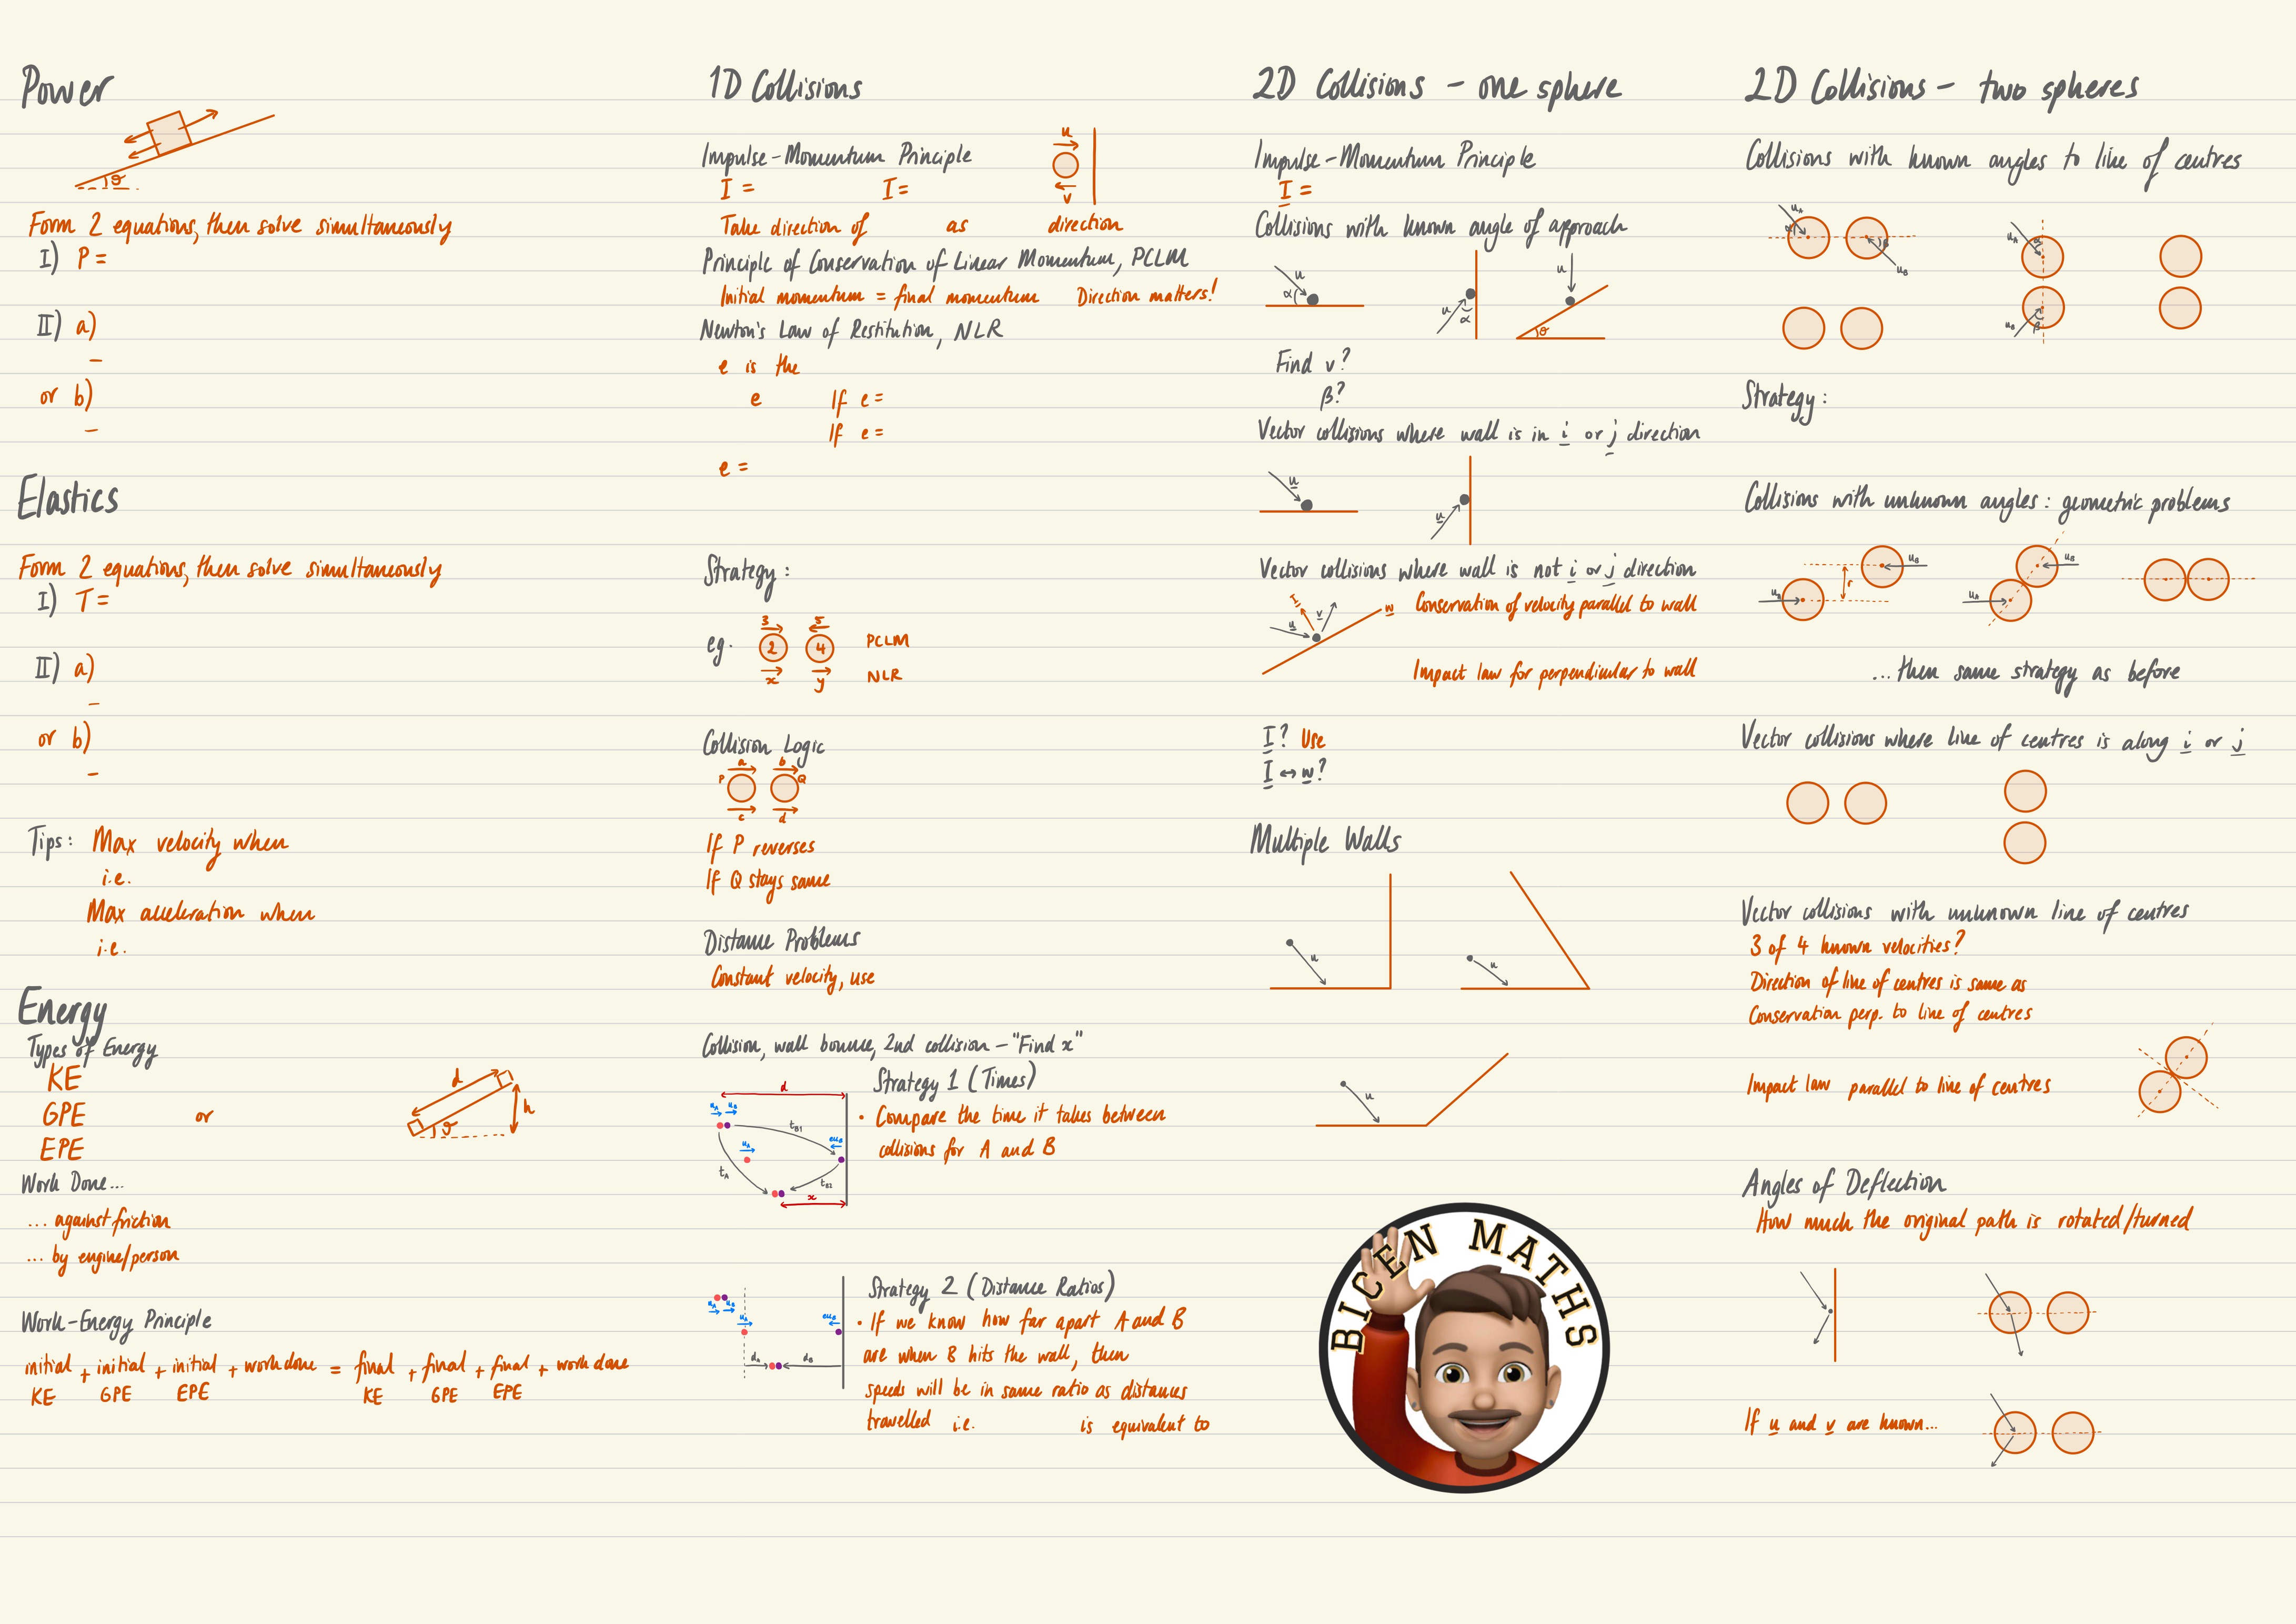 Power
θ
Form 2 equations, then solve simultaneously
I) P =
II) a)
–
or b)
–
Elastics
Form 2 equations, then solve simultaneously
I) T =
II) a)
–
or b)
–
Tips: Max velocity when
i.e.
Max acceleration when
i.e.
Energy
Types of Energy
KE
GPE or
EPE
d
h
θ
Work Done...
... against friction
... by engine/person
Work-Energy Principle
initial + initial + initial + work done = final + final + final + work done
KE GPE EPE KE GPE EPE
1D Collisions
Impulse-Momentum Principle
I = I =
u
v
Take direction of as direction
Principle of Conservation of Linear Momentum, PCLM
Initial momentum = final momentum Direction matters!
Newton's Law of Restitution, NLR
e is the
e If e =
If e =
e =
Strategy:
eg. 3 5
2 4 PCLM
x y NLR
Collision Logic
a b
P Q
c d
If P reverses
If Q stays same
Distance Problems
Constant velocity, use
Collision, wall bounce, 2nd collision - "Find x"
d
uA uB
tB1
euB
uA
tA
tB2
x
Strategy 1 (Times)
• Compare the time it takes between
collisions for A and B
uA uB
uA
euB
dA dB
Strategy 2 (Distance Ratios)
• If we know how far apart A and B
are when B hits the wall, then
speeds will be in same ratio as distances
travelled i.e. is equivalent to
2D Collisions - one sphere
Impulse-Momentum Principle
I =
Collisions with known angle of approach
u α
u α
u θ
Find v?
β?
Vector collisions where wall is in i or j direction
u
u
Vector collisions where wall is not i or j direction
I v w
u
Conservation of velocity parallel to wall
Impact law for perpendicular to wall
I? Use
I ↔ w?
Multiple Walls
u
u
u
BICEN MATHS
2D Collisions - two spheres
Collisions with known angles to line of centres
uA α
β uB
uA α
uB β
Strategy:
Collisions with unknown angles: geometric problems
uB
uA
r
uB
uA
...then same strategy as before
Vector collisions where line of centres is along i or j
Vector collisions with unknown line of centres
3 of 4 known velocities?
Direction of line of centres is same as
Conservation perp. to line of centres
Impact law parallel to line of centres
Angles of Deflection
How much the original path is rotated/turned
If u and v are known...